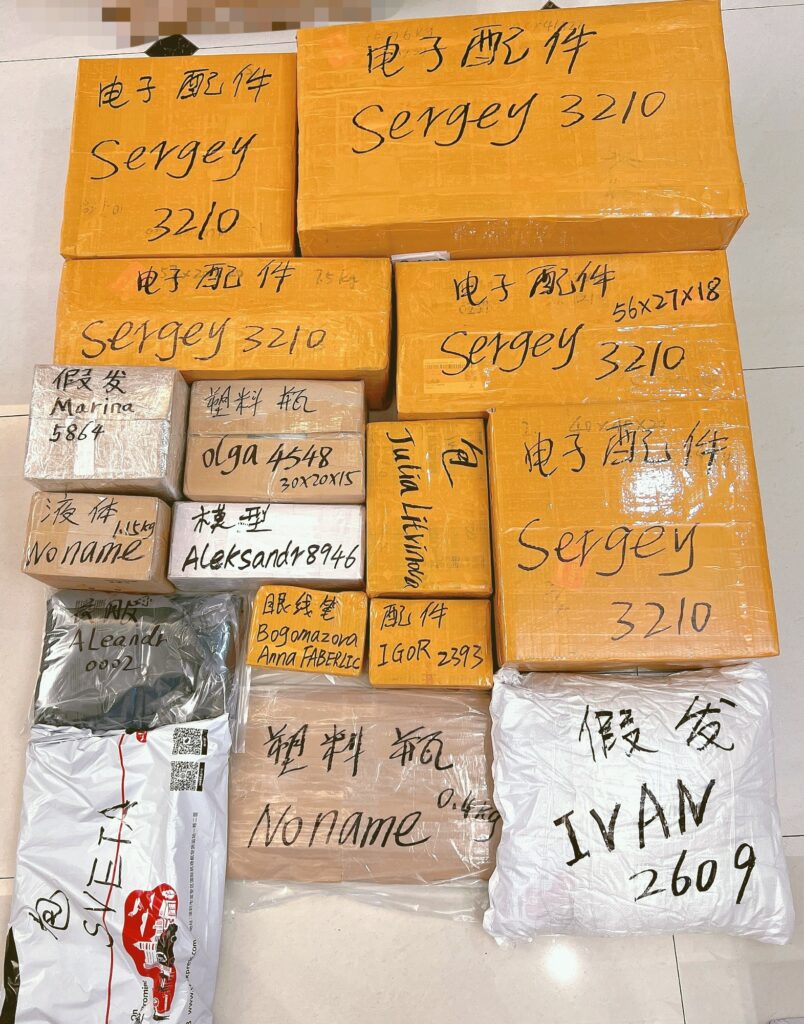 电子配件
Sergey
3210
电子配件
Sergey 3210
电子配件
7.5kg
Sergey 3210
电子配件
56X27X18
Sergey 3210
假发
Marina
5864
塑料瓶
olga 4548
30X20X15
包
Julia Litvinova
电子配件
Sergey
3210
液体
1.15kg
No name
模型
Aleksandr8946
眼线笔
Bogomazova
Anna FABERLIC
配件
IGOR 2393
ALeandr
0002
包
SVETA
塑料瓶
0.4kg
No name
假发
IVAN
2609